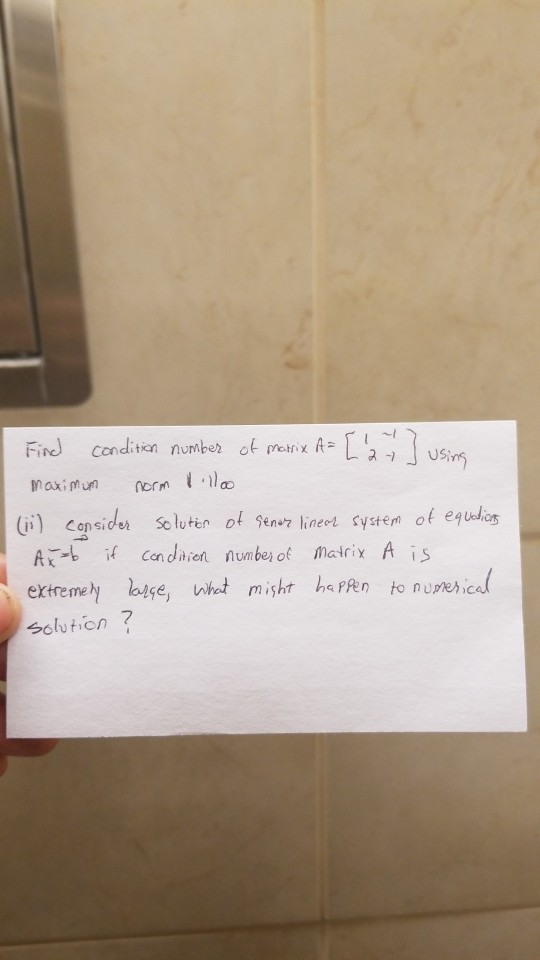 Find condition number of matrix A = [ 1 -1 ; 2 -1 ] using
maximum norm ||·||∞
(ii) consider solution of linear system of equations
Ax̄ = b if condition number of matrix A is
extremely large, what might happen to numerical
solution ?